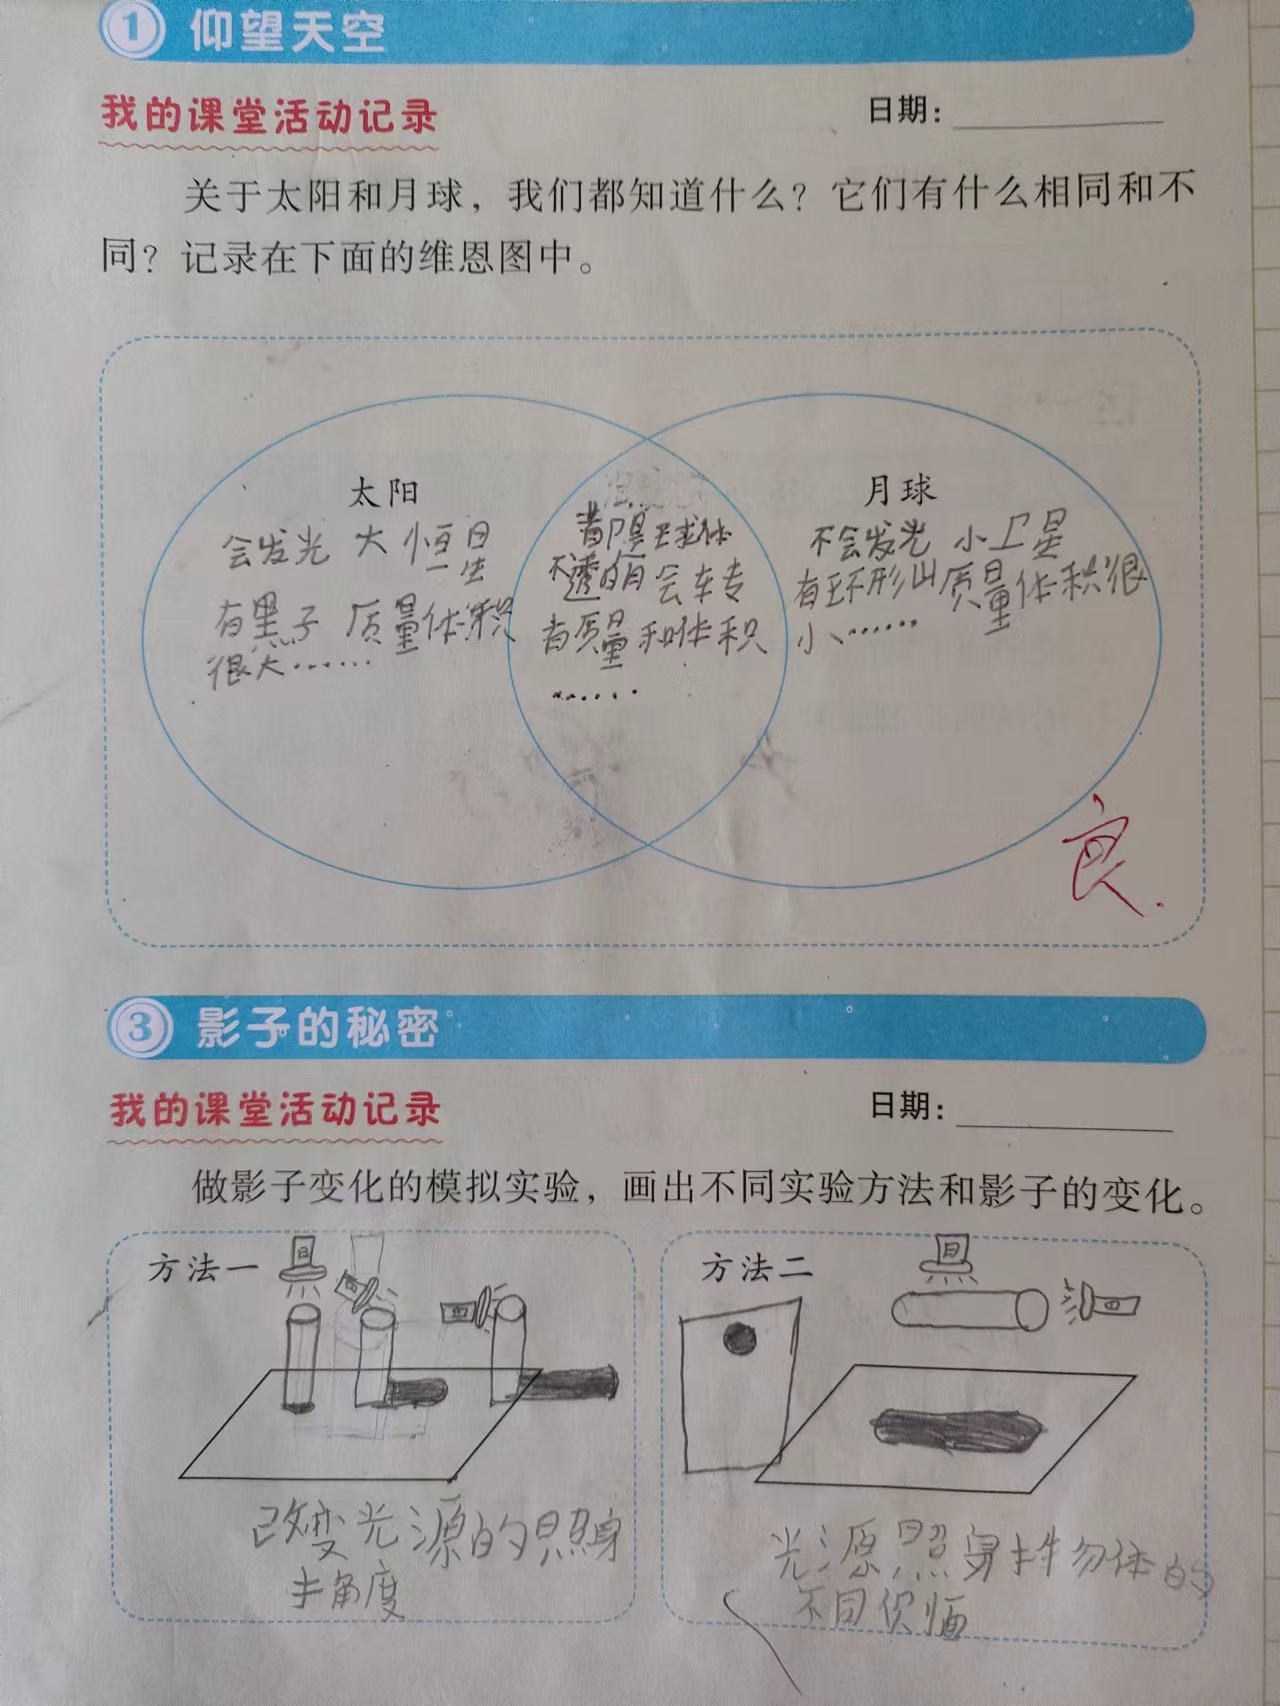 1 仰望天空
我的课堂活动记录 日期：
关于太阳和月球，我们都知道什么？它们有什么相同和不
同？记录在下面的维恩图中。
太阳
会发光 大 恒星
有黑子 质量体积
很大……
球体
不透明 会转
有质量和体积
……
月球
不会发光 小卫星
有环形山质量体积很
小……
良
3 影子的秘密
我的课堂活动记录 日期：
做影子变化的模拟实验，画出不同实验方法和影子的变化。
方法一
改变光源的照射
角度
方法二
光源照射物体的
不同侧面